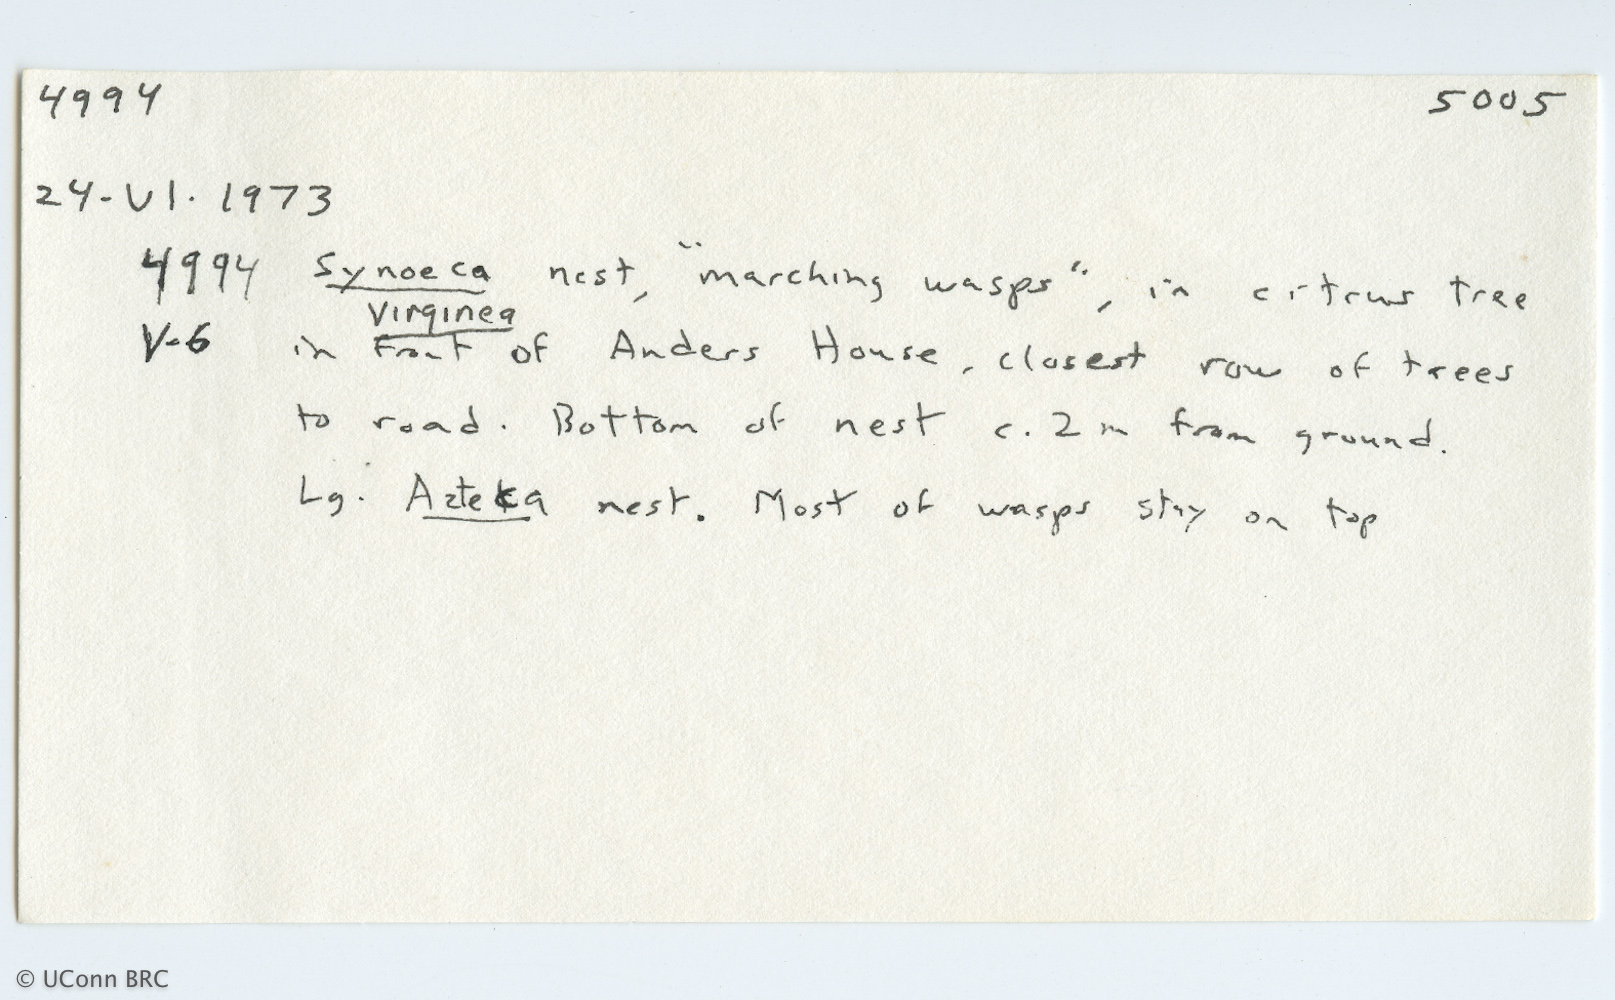 4994 5005
24-VI. 1973
4994 Synoeca nest, "marching wasps", in citrus tree
Virginea
V-6 in front of Anders House, closest row of trees
to road. Bottom of nest c. 2 m from ground.
Lg. Azteca nest. Most of wasps stay on top
© UConn BRC